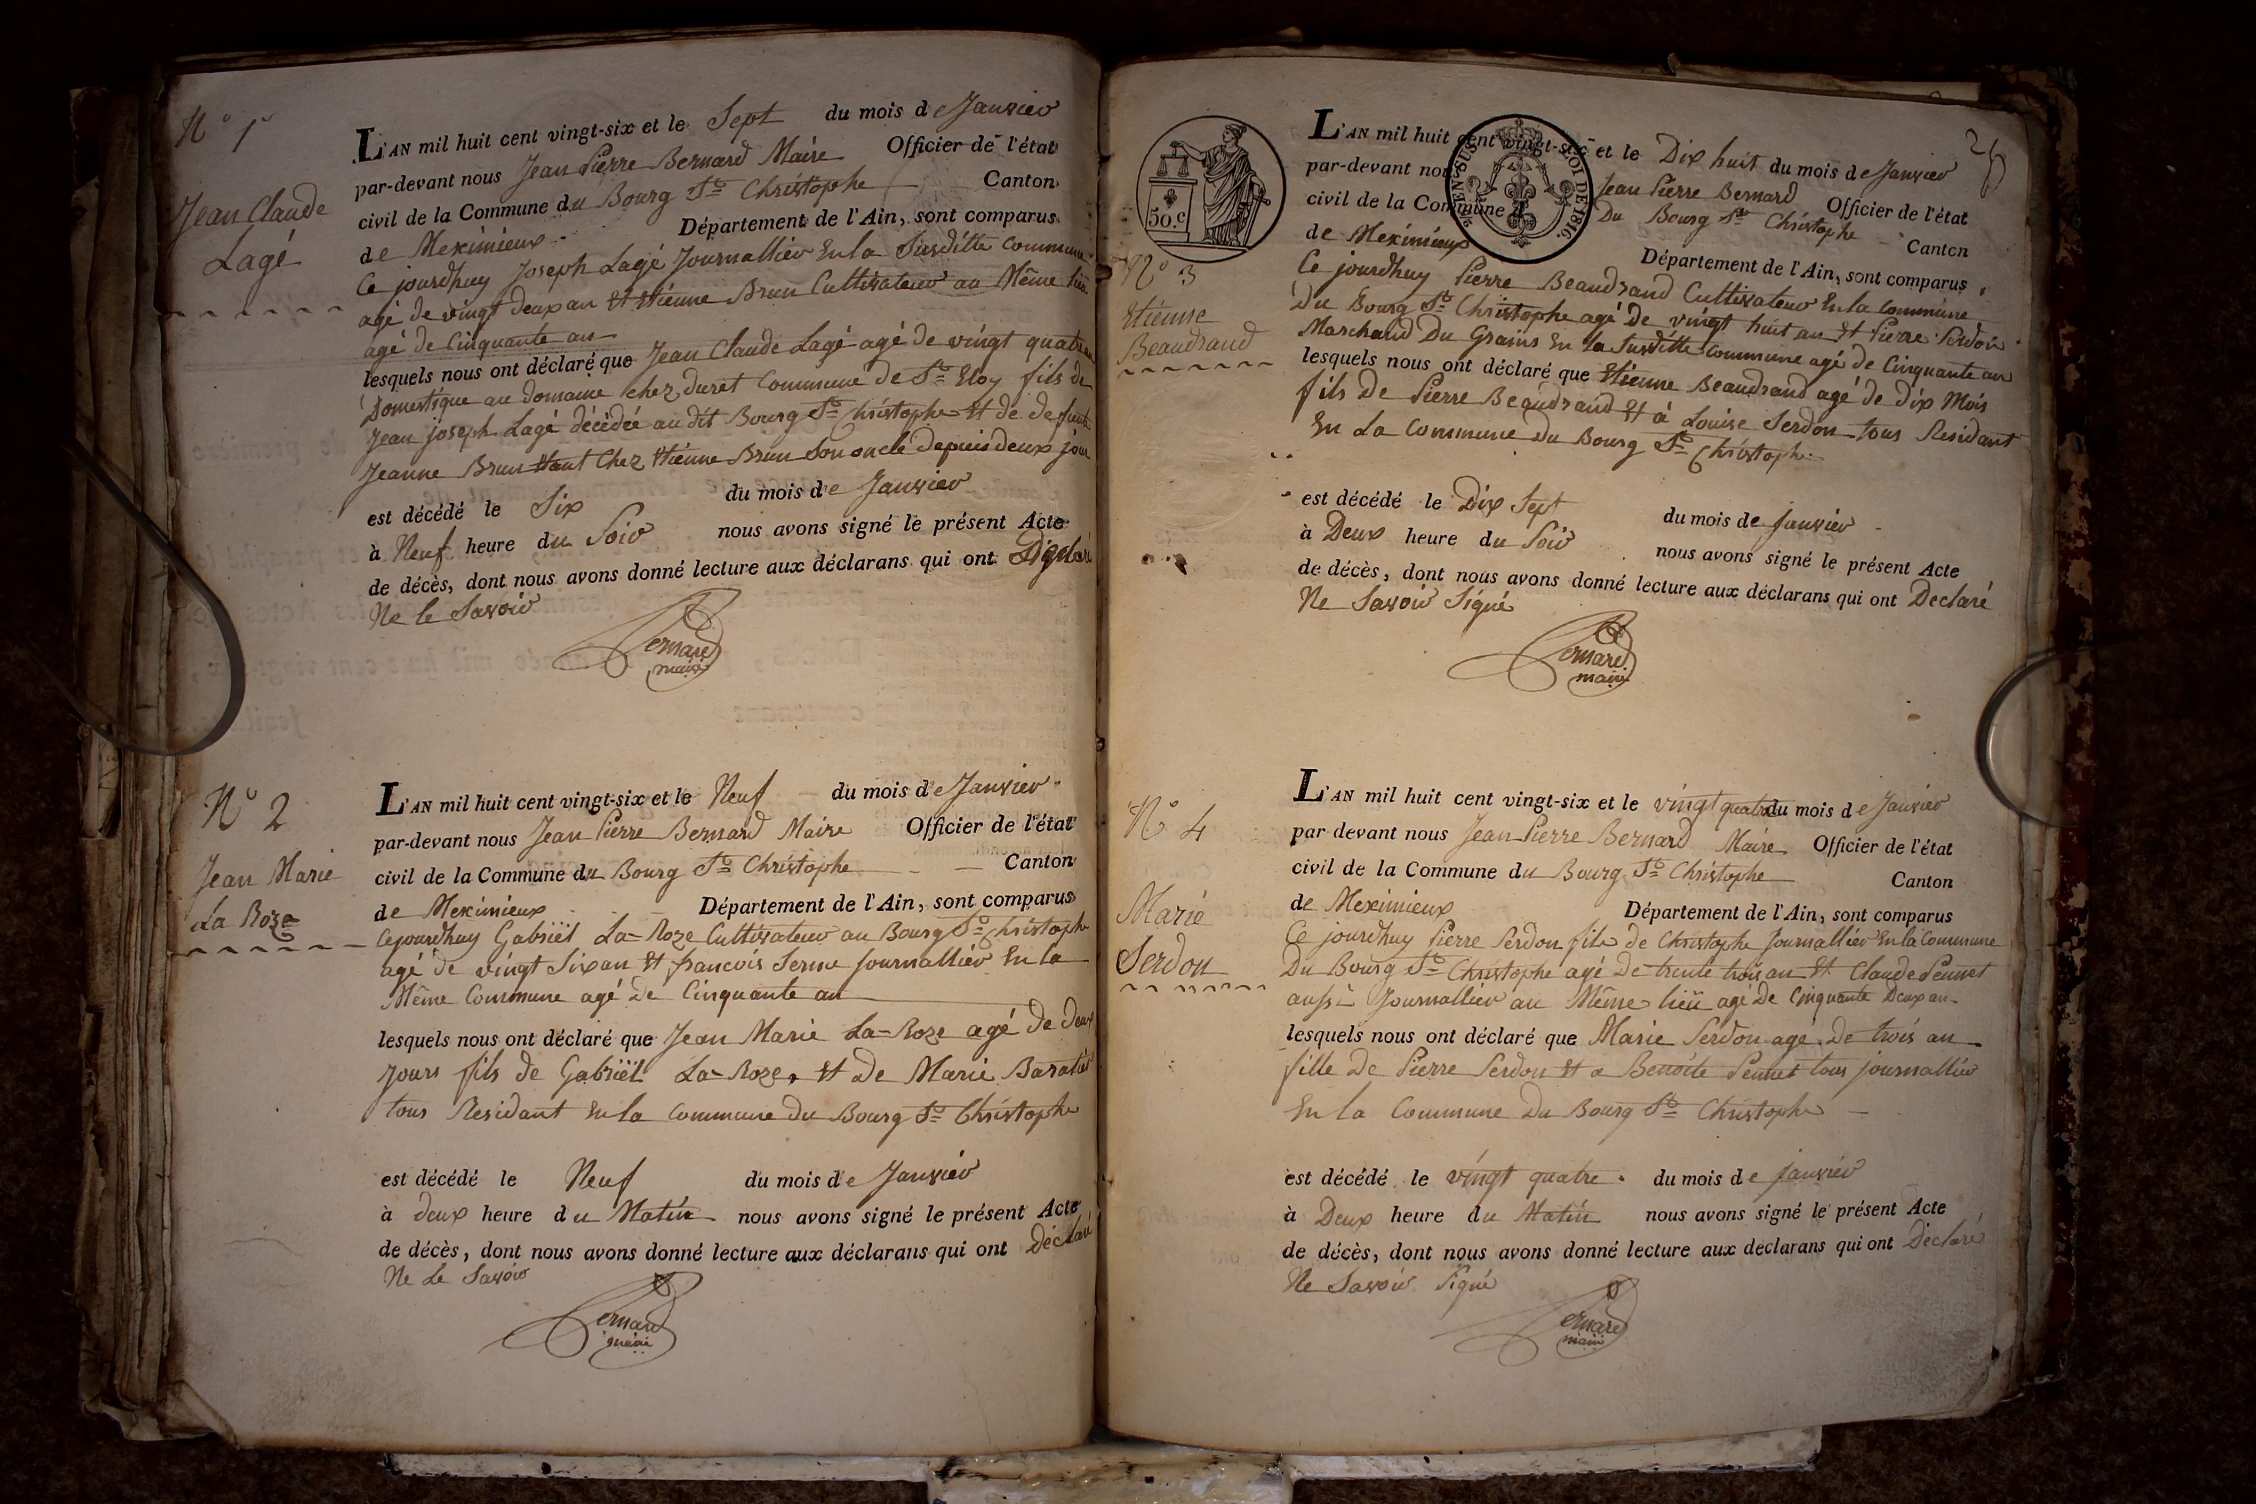 N.o 1er
Jean Claude
Lagé
L'AN mil huit cent vingt-six et le Sept du mois de Janvier
par-devant nous Jean Pierre Bernard Maire Officier de l'état
civil de la Commune du Bourg St Christophe Canton
de Meximieux Département de l'Ain, sont comparus
Ce jourdhuy Joseph Lagé Journallier En la Susditte Commune
agé de vingt deux an Et Etiénne Brun Cultivateur au Même lieu
agé de Cinquante an
lesquels nous ont déclaré que Jean Claude Lagé agé de vingt quatre an
Domestique au domaine chez duret Commune de St Eloy fils de
Jean joseph Lagé décédée au dit Bourg St Christophe Et de defunte
Jeanne Brun Etant Chez Etiénne Brun Son oncle depuis deux jour
est décédé le Six du mois de Janvier
à Neuf heure du Soir nous avons signé le présent Acte
de décès, dont nous avons donné lecture aux déclarans qui ont
Ne le Savoir
Bernard
maire
N.o 2
Jean Marie
La Roze
L'AN mil huit cent vingt-six et le Neuf du mois de Janvier
par-devant nous Jean Pierre Bernard Maire Officier de l'état
civil de la Commune du Bourg St Christophe Canton
de Meximieux Département de l'Ain, sont comparus
Cejourdhuy Gabriël La-Roze Cultivateur au Bourg St Christophe
agé de vingt Six an Et francois Serme Journallier En la
Même Commune agé de Cinquante an
lesquels nous ont déclaré que Jean Marie La-Roze agé de deux
Jours fils de Gabriël La-Roze, Et De Marie Baratier
tous Residant En la Commune du Bourg St Christophe
est décédé le Neuf du mois de Janvier
à deux heure du Matin nous avons signé le présent Acte
de décès, dont nous avons donné lecture aux déclarans qui ont Déclaré
Ne Le Savoir
Bernard
maire
50.c
EN SUS
LOI DE 1816.
25
N.o 3
Etiénne
Beaudrand
L'AN mil huit cent vingt-six et le Dix huit du mois de Janvier
par-devant nous Jean Pierre Bernard Officier de l'état
civil de la Commune Du Bourg St Christophe Canton
de Meximieux Département de l'Ain, sont comparus
Ce jourdhuy Pierre Beaudrand Cultivateur En la Commune
du Bourg St Christophe agé De vingt huit an Et Pierre Serdon
Marchand Du Grains En la Susditte Commune agé de Cinquante an
lesquels nous ont déclaré que Etiénne Beaudrand agé de dix Mois
fils De Pierre Beaudrand Et à Louise Serdon tous Residant
En La Commune Du Bourg St Christophe
est décédé le Dix Sept du mois de janvier
à Deux heure du Soir nous avons signé le présent Acte
de décès, dont nous avons donné lecture aux déclarans qui ont Declaré
Ne Savoir Signé
Bernard
maire
N.o 4
Marie
Serdon
L'AN mil huit cent vingt-six et le vingt quatre du mois de Janvier
par devant nous Jean Pierre Bernard Maire Officier de l'état
civil de la Commune du Bourg St Christophe Canton
de Meximieux Département de l'Ain, sont comparus
Ce jourdhuy Pierre Serdon fils de Christophe Journallier En la Commune
Du Bourg St Christophe agé De trente trois an Et Claude Pennet
aussi Journallier au Même lieu agé De Cinquante Deux an
lesquels nous ont déclaré que Marie Serdon agé De trois an
fille De Pierre Serdon Et a Benoite Pennet tous journallier
En la Commune Du Bourg St Christophe
est décédé le vingt quatre du mois de janvier
à Deux heure du Matin nous avons signé le présent Acte
de décès, dont nous avons donné lecture aux declarans qui ont Declaré
Ne Savoir Signé
Bernard
maire